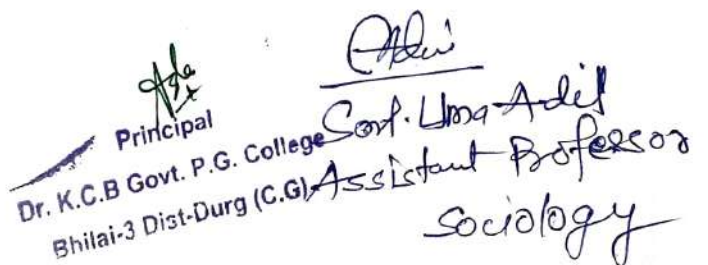 Principal
Dr. K.C.B Govt. P.G. College
Bhilai-3 Dist-Durg (C.G)
Uma Adil
Assistant Professor
Sociology